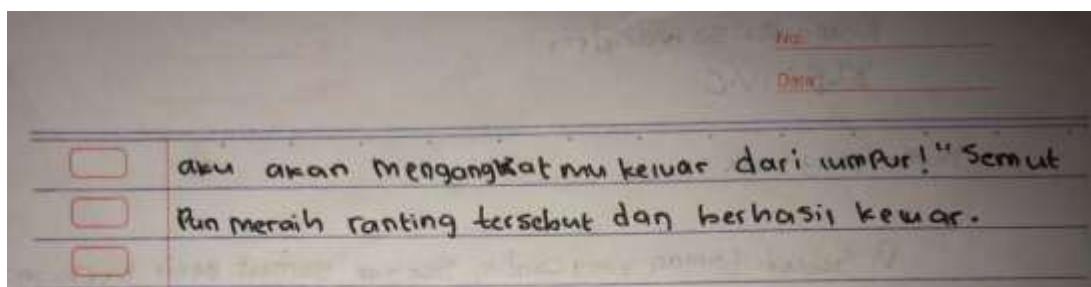 No:
Date:
aku akan mengangkatmu keluar dari lumpur!" Semut
Pun meraih ranting tersebut dan berhasil keluar.